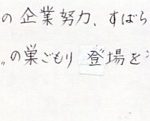 の企業努力、すばら
の巣ごもり 登場を